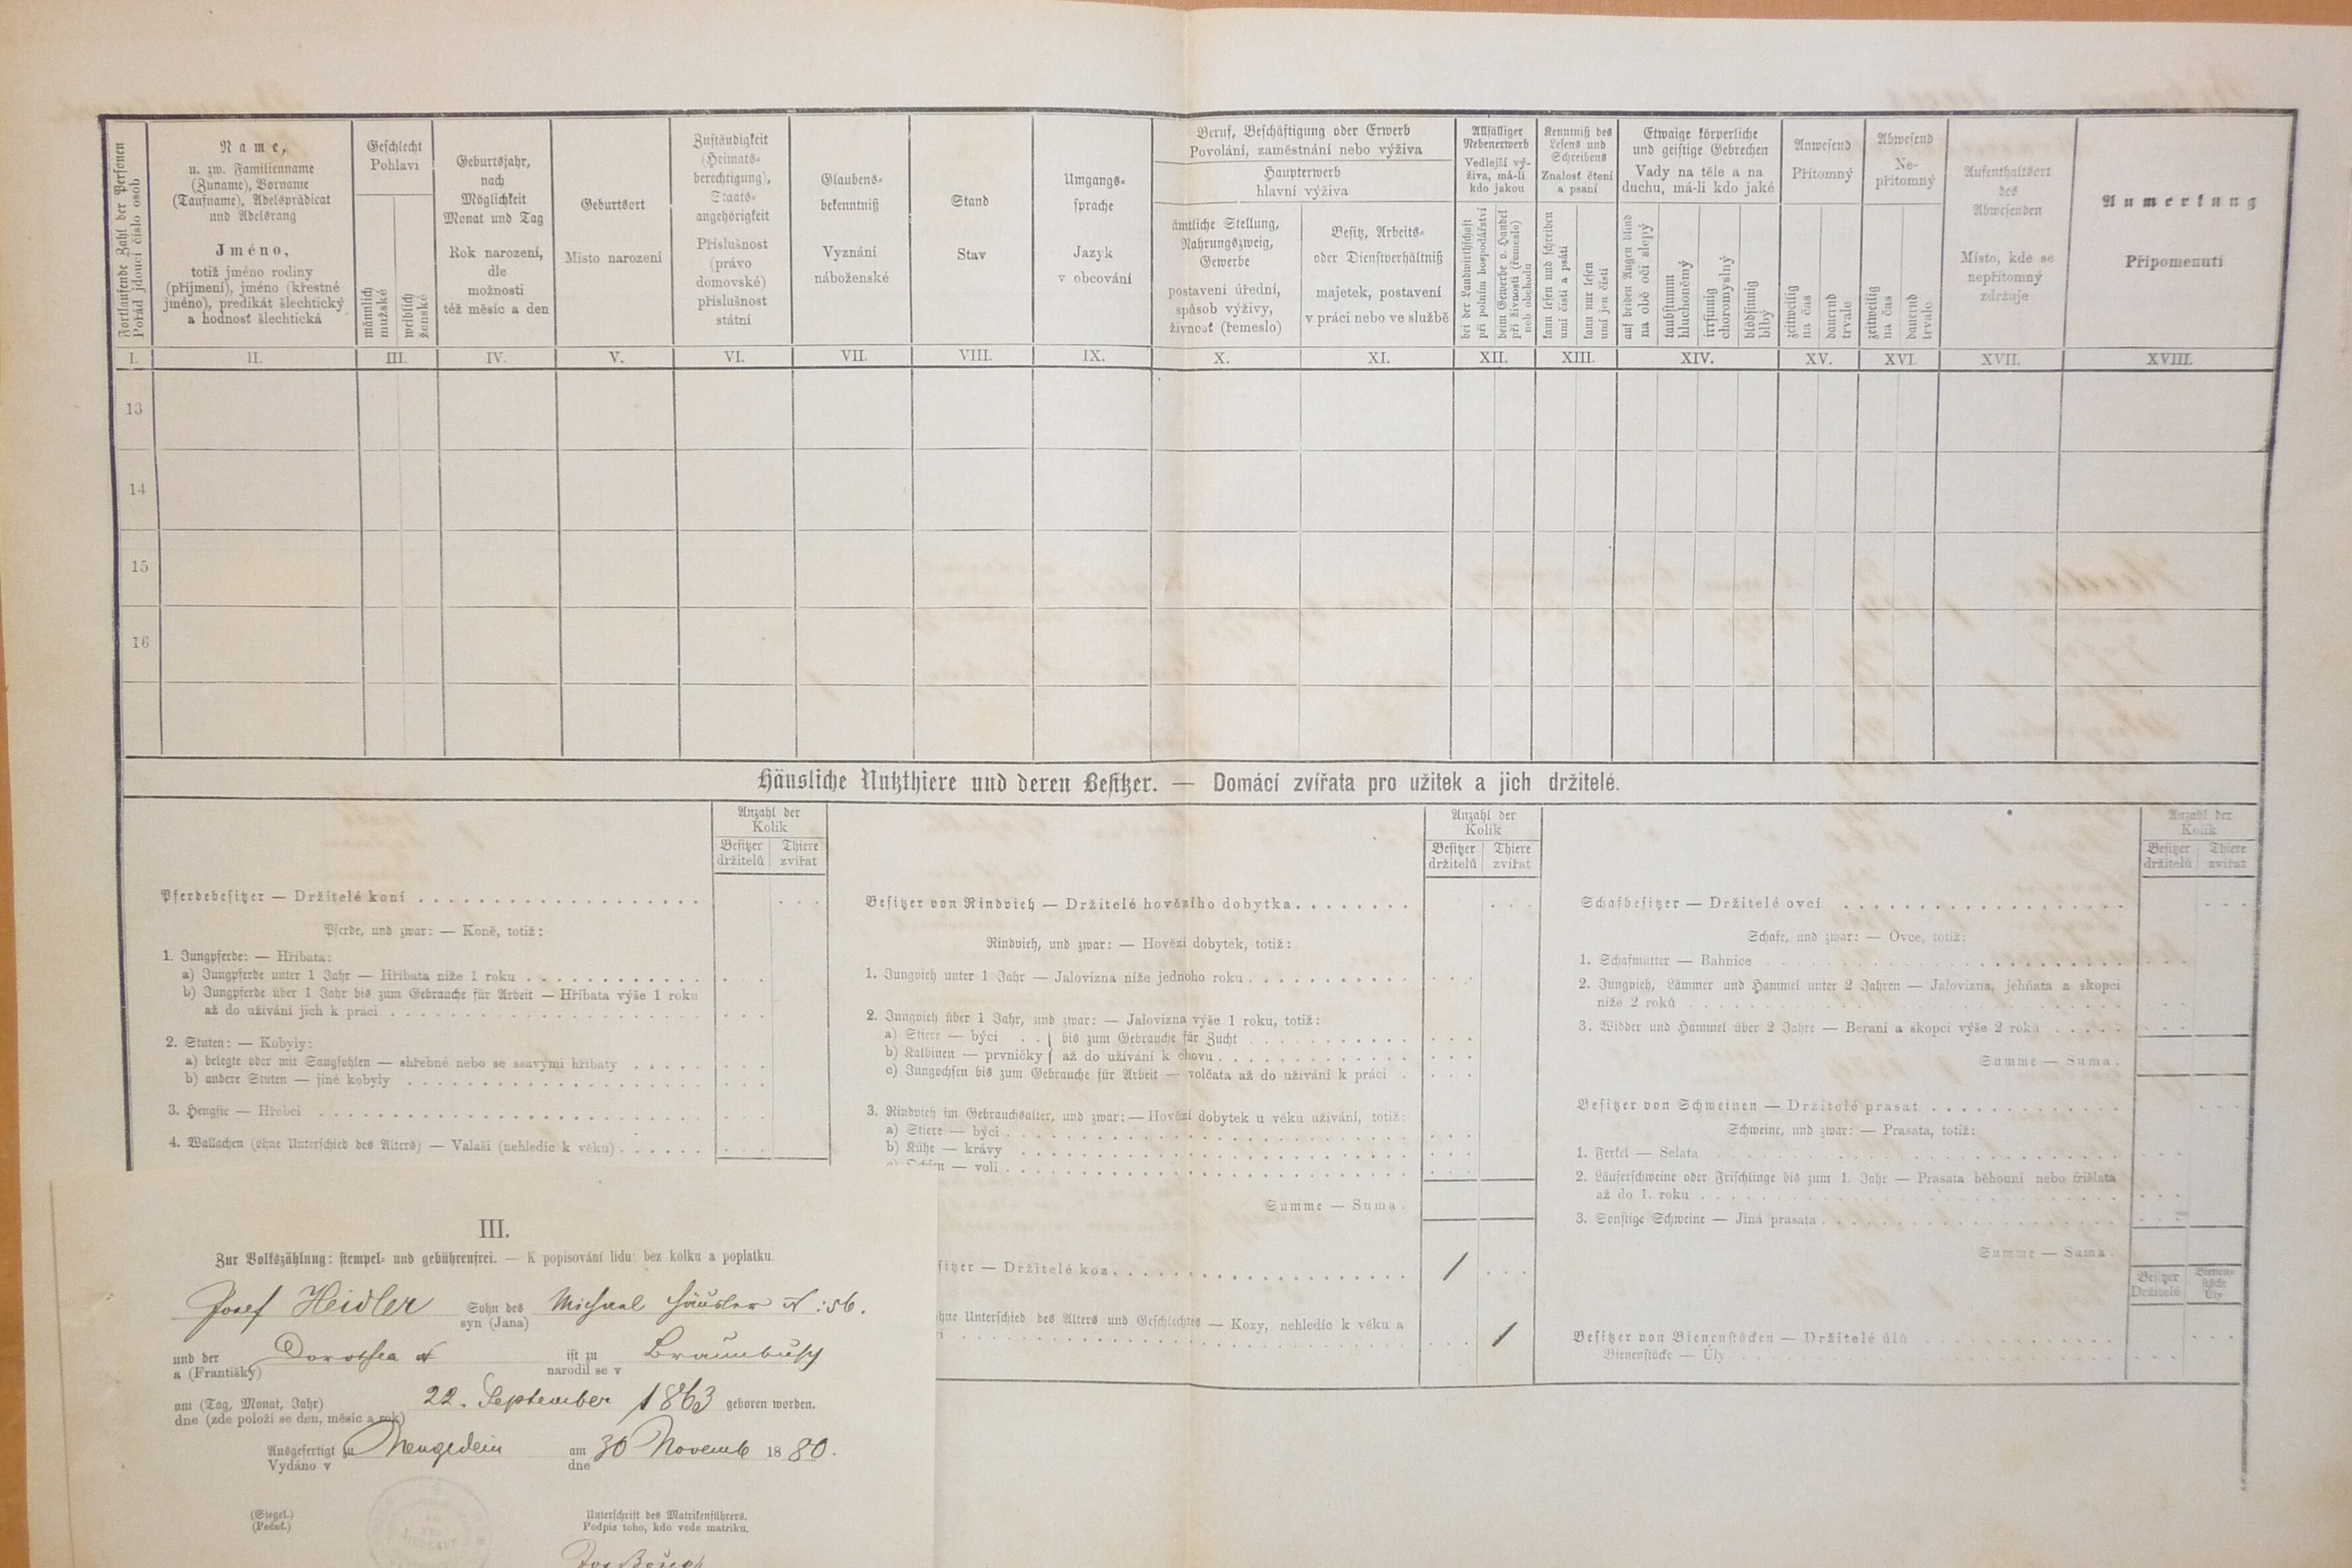 Fortlaufende Zahl der Personen
Pořád jdoucí číslo osob
Name,
u. zw. Familienname
(Zuname), Vorname
(Taufname), Adelsprädicat
und Adelsrang
Jméno,
totiž jméno rodiny
(příjmení), jméno (křestné
jméno), predikát šlechtický
a hodnosť šlechtická
Geschlecht
Pohlaví
männlich
mužské
weiblich
ženské
Geburtsjahr,
nach
Möglichkeit
Monat und Tag
Rok narození,
dle
možnosti
též měsíc a den
Geburtsort
Místo narození
Zuständigkeit
(Heimats-
berechtigung),
Staats-
angehörigkeit
Příslušnost
(právo
domovské)
příslušnost
státní
Glaubens-
bekenntniß
Vyznání
náboženské
Stand
Stav
Umgangs-
sprache
Jazyk
v obcování
Beruf, Beschäftigung oder Erwerb
Povolání, zaměstnání nebo výživa
Haupterwerb
hlavní výživa
ämtliche Stellung,
Nahrungszweig,
Gewerbe
postavení úřední,
spůsob výživy,
živnosť (řemeslo)
Besitz, Arbeits-
oder Dienstverhältniß
majetek, postavení
v práci nebo ve službě
Allfälliger
Nebenerwerb
Vedlejší vý-
živa, má-li
kdo jakou
bei der Landwirthschaft
při polním hospodářství
beim Gewerbe o. Handel
při živnosti (řemesle)
neb obchodu
Kenntniß des
Lesens und
Schreibens
Znalosť čtení
a psaní
kann lesen und schreiben
umí čísti a psáti
kann nur lesen
umí jen čísti
Etwaige körperliche
und geistige Gebrechen
Vady na těle a na
duchu, má-li kdo jaké
auf beiden Augen blind
na obě oči slepý
taubstumm
hluchoněmý
irrsinnig
choromyslný
blödsinnig
blbý
Anwesend
Přítomný
zeitweilig
na čas
dauernd
trvale
Abwesend
Ne-
přítomný
zeitweilig
na čas
dauernd
trvale
Aufenthaltsort
des
Abwesenden
Místo, kde se
nepřítomný
zdržuje
Anmerkung
Připomenutí
I. II. III. IV. V. VI. VII. VIII. IX. X. XI. XII. XIII. XIV. XV. XVI. XVII. XVIII.
13
14
15
16
Häusliche Nutzthiere und deren Besitzer. — Domácí zvířata pro užitek a jich držitelé.
Anzahl der
Kolik
Besitzer
držitelů
Thiere
zvířat
Pferdebesitzer — Držitelé koní
Pferde, und zwar: — Koně, totiž:
1. Jungpferde: — Hříbata:
a) Jungpferde unter 1 Jahr — Hříbata níže 1 roku
b) Jungpferde über 1 Jahr bis zum Gebrauche für Arbeit — Hříbata výše 1 roku
až do užívání jich k práci
2. Stuten: — Kobyly:
a) belegte oder mit Saugfohlen — shřebné nebo se ssavými hříbaty
b) andere Stuten — jiné kobyly
3. Hengste — Hřebci
4. Wallachen (ohne Unterschied des Alters) — Valaši (nehledíc k věku)
Anzahl der
Kolik
Besitzer
držitelů
Thiere
zvířat
Besitzer von Rindvieh — Držitelé hovězího dobytka
Rindvieh, und zwar: — Hovězí dobytek, totiž:
1. Jungvieh unter 1 Jahr — Jalovizna níže jednoho roku
2. Jungvieh über 1 Jahr, und zwar: — Jalovizna výše 1 roku, totiž:
a) Stiere — býci . . } bis zum Gebrauche für Zucht
b) Kalbinen — prvničky } až do užívání k chovu
c) Jungochsen bis zum Gebrauche für Arbeit — volčata až do užívání k práci
3. Rindvieh im Gebrauchsalter, und zwar: — Hovězí dobytek u věku užívání, totiž:
a) Stiere — býci
b) Kühe — krávy
— voli
Summe — Suma.
sitzer — Držitelé koz 1
ohne Unterschied des Alters und Geschlechtes — Kozy, nehledíc k věku a
1
Anzahl der
Kolik
Besitzer
držitelů
Thiere
zvířat
Schafbesitzer — Držitelé ovcí
Schafe, und zwar: — Ovce, totiž:
1. Schafmütter — Bahnice
2. Jungvieh, Lämmer und Hammel unter 2 Jahren — Jalovizna, jehňata a skopci
níže 2 roků
3. Widder und Hammel über 2 Jahre — Berani a skopci výše 2 roků
Summe — Suma.
Besitzer von Schweinen — Držitelé prasat
Schweine, und zwar: — Prasata, totiž:
1. Ferkel — Selata
2. Läuferschweine oder Frischlinge bis zum 1. Jahr — Prasata běhouni nebo frišlata
až do 1. roku
3. Sonstige Schweine — Jiná prasata
Summe — Suma.
Besitzer
Držitelé
Bienen-
stöcke
Úly
Besitzer von Bienenstöcken — Držitelé úlů
Bienenstöcke — Úly
III.
Zur Volkszählung: stempel- und gebührenfrei. — K popisování lidu: bez kolku a poplatku.
Josef Heidler Sohn des Michael Häusler N: 56.
syn (Jana)
und der Dorothea ist zu Braunbusch
a (Františky) narodil se v
am (Tag, Monat, Jahr) 22. September 1863 geboren worden.
dne (zde položí se den, měsíc a rok)
Ausgefertigt zu Neugedein am 30 Novemb 1880.
Vydáno v dne
(Siegel.)
(Pečeť.)
Unterschrift des Matrikenführers.
Podpis toho, kdo vede matriku.